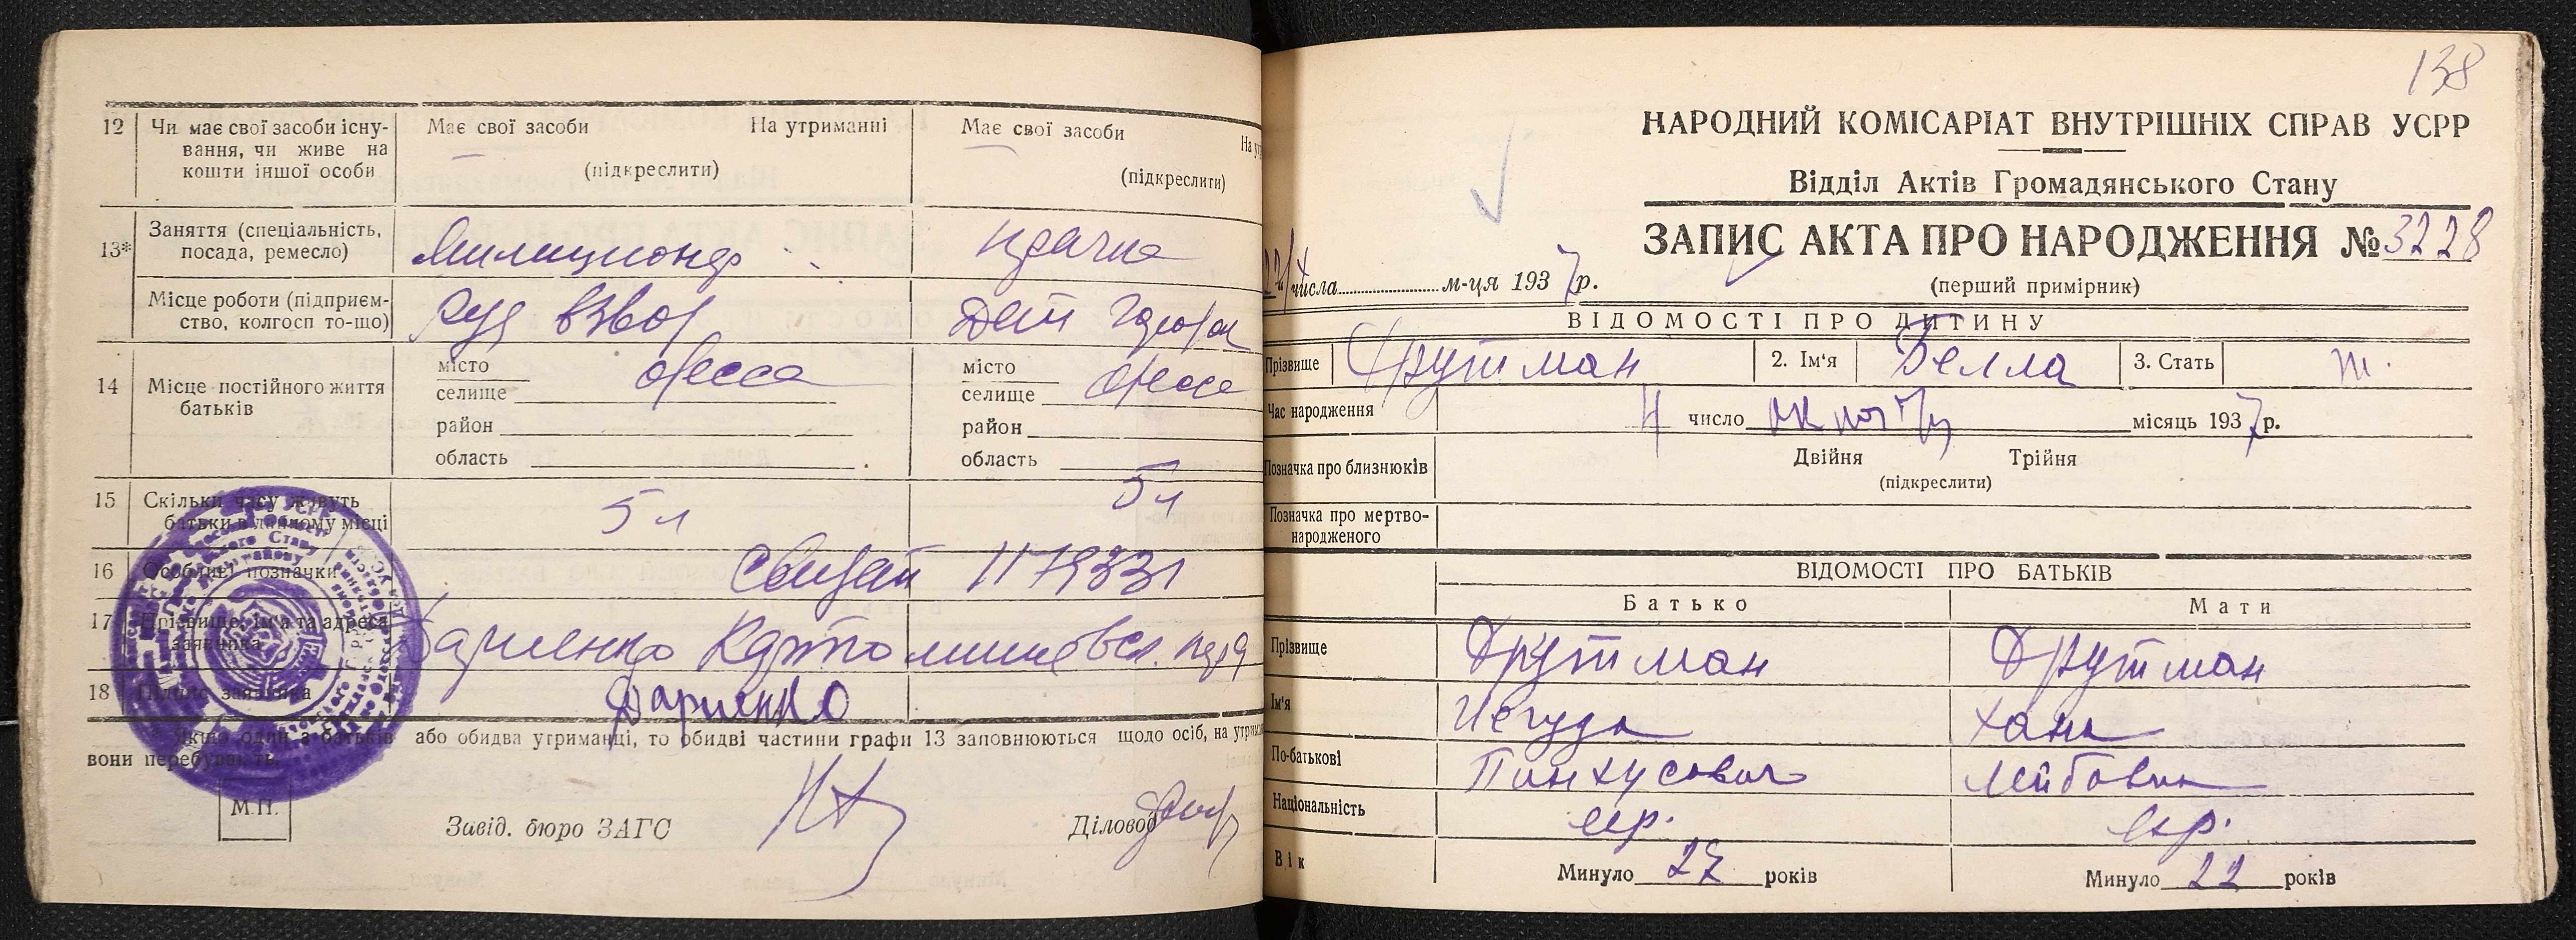 12 Чи має свої засоби існу-
вання, чи живе на
кошти іншої особи
Має свої засоби На утриманні
(підкреслити)
Має свої засоби
(підкреслити)
13* Заняття (спеціальність,
посада, ремесло)
Милиционер
Місце роботи (підприєм-
ство, колгосп то-що)
14 Місце постійного життя
батьків
місто Одесса
селище
район
область
місто Одесса
селище
район
область
15 Скільки часу живуть
батьки в данному місці
5 л
5 л
16 Особливі позначки
1179331
17 Прізвище, ім'я та адреса
заявника
18 Підпис заявника
* Якщо один з батьків або обидва утриманці, то обидві частини графи 13 заповнюються щодо осіб, на
вони перебувають.
М.П.
Завід. бюро ЗАГС
Діловод
138
НАРОДНИЙ КОМІСАРІАТ ВНУТРІШНІХ СПРАВ УСРР
Відділ Актів Громадянського Стану
ЗАПИС АКТА ПРО НАРОДЖЕННЯ № 3228
числа м-ця 1937 р.
(перший примірник)
ВІДОМОСТІ ПРО ДИТИНУ
Прізвище Фрутман 2. Ім'я Белла 3. Стать ж.
Час народження 4 число октября місяць 1937 р.
Позначка про близнюків
Двійня Трійня
(підкреслити)
Позначка про мертво-
народженого
ВІДОМОСТІ ПРО БАТЬКІВ
Батько Мати
Прізвище Фрутман Фрутман
Ім'я Иегуда Хана
По-батькові Пинхусович Лейбовна
Національність евр. евр.
Вік Минуло 27 років Минуло 22 років